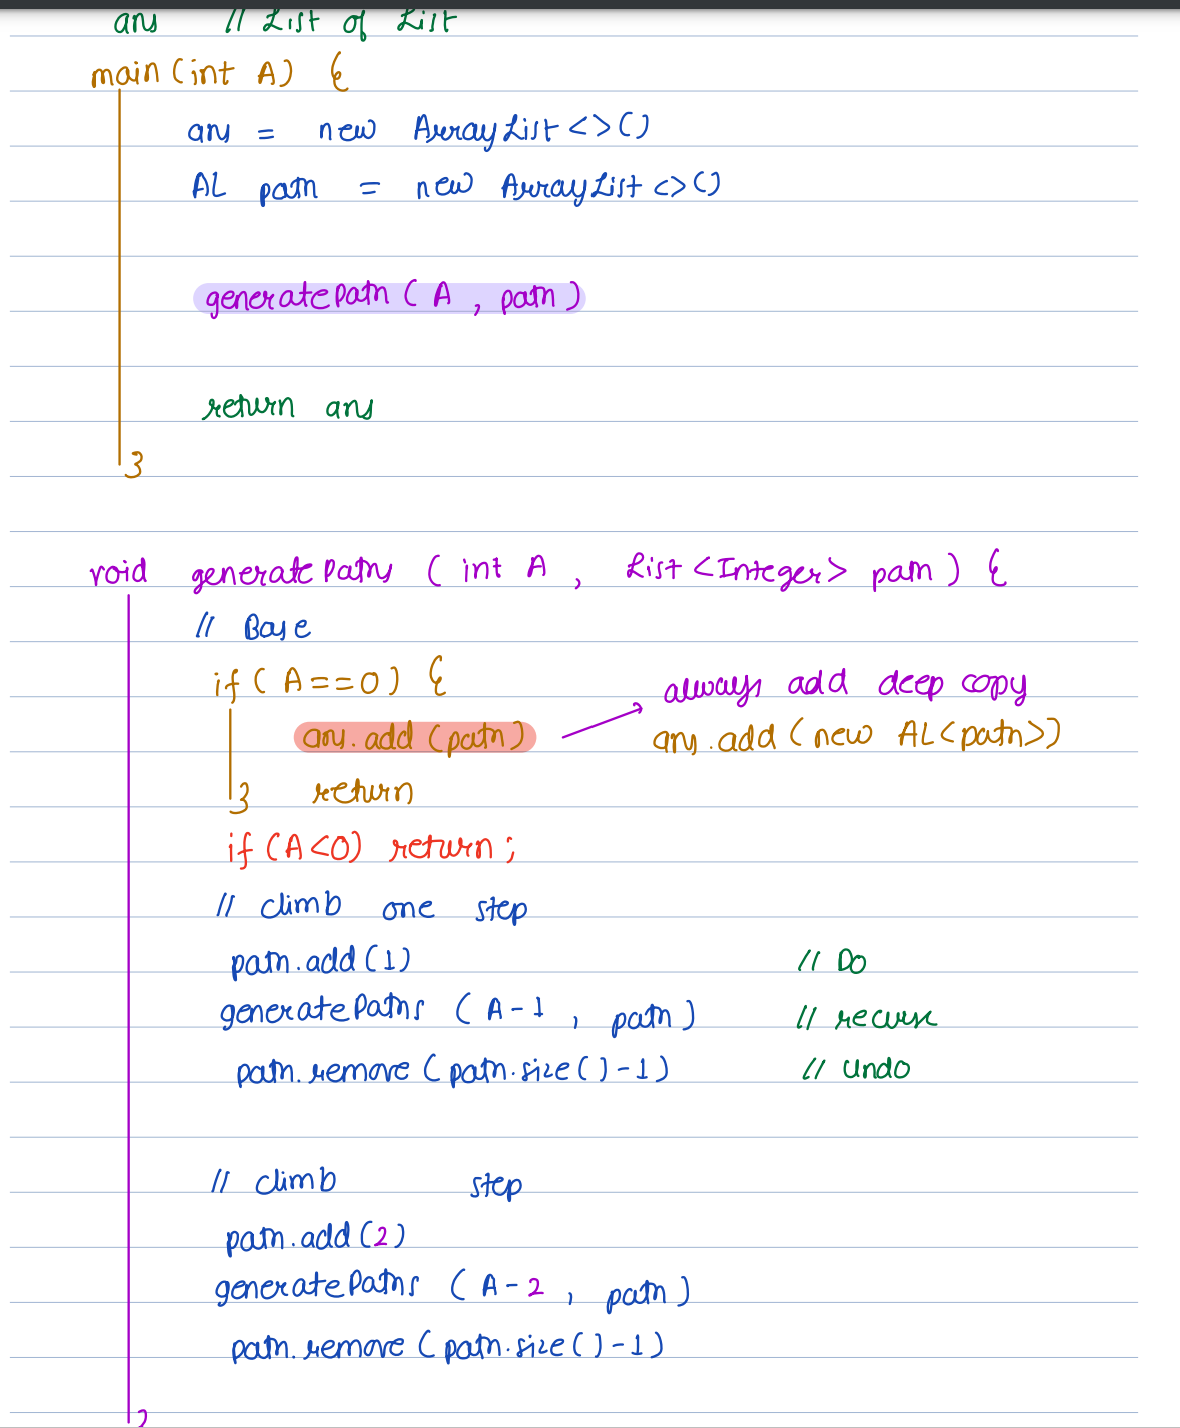 ans // List of List
main (int A) {
ans = new ArrayList <> ()
AL path = new ArrayList <> ()
generatePath ( A , path )
return ans
}
void generatePaths ( int A , List <Integer> path ) {
// Base
if ( A == 0 ) {
always add deep copy
ans.add (path) ans.add ( new AL <path> )
} return
if (A <0) return ;
// climb one step
path.add (1) // Do
generatePaths ( A - 1 , path ) // recurse
path.remove ( path.size ( ) - 1 ) // Undo
// climb step
path.add (2)
generatePaths ( A - 2 , path )
path.remove ( path.size ( ) - 1 )
}